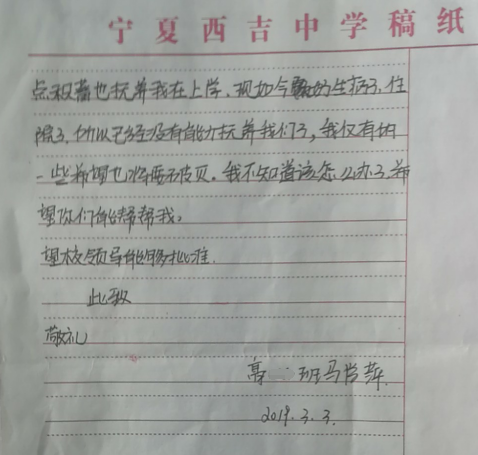 宁夏西吉中学稿纸
点积蓄也抚养我在上学、现如今又生病了，住
院了，他以已经没有能力抚养我们了，我仅有的
一些希望也将要破灭。我不知道该怎么办了，希
望你们能帮帮我。
望校领导能够批准。
此致
敬礼
高一 班马
2019.3.3.